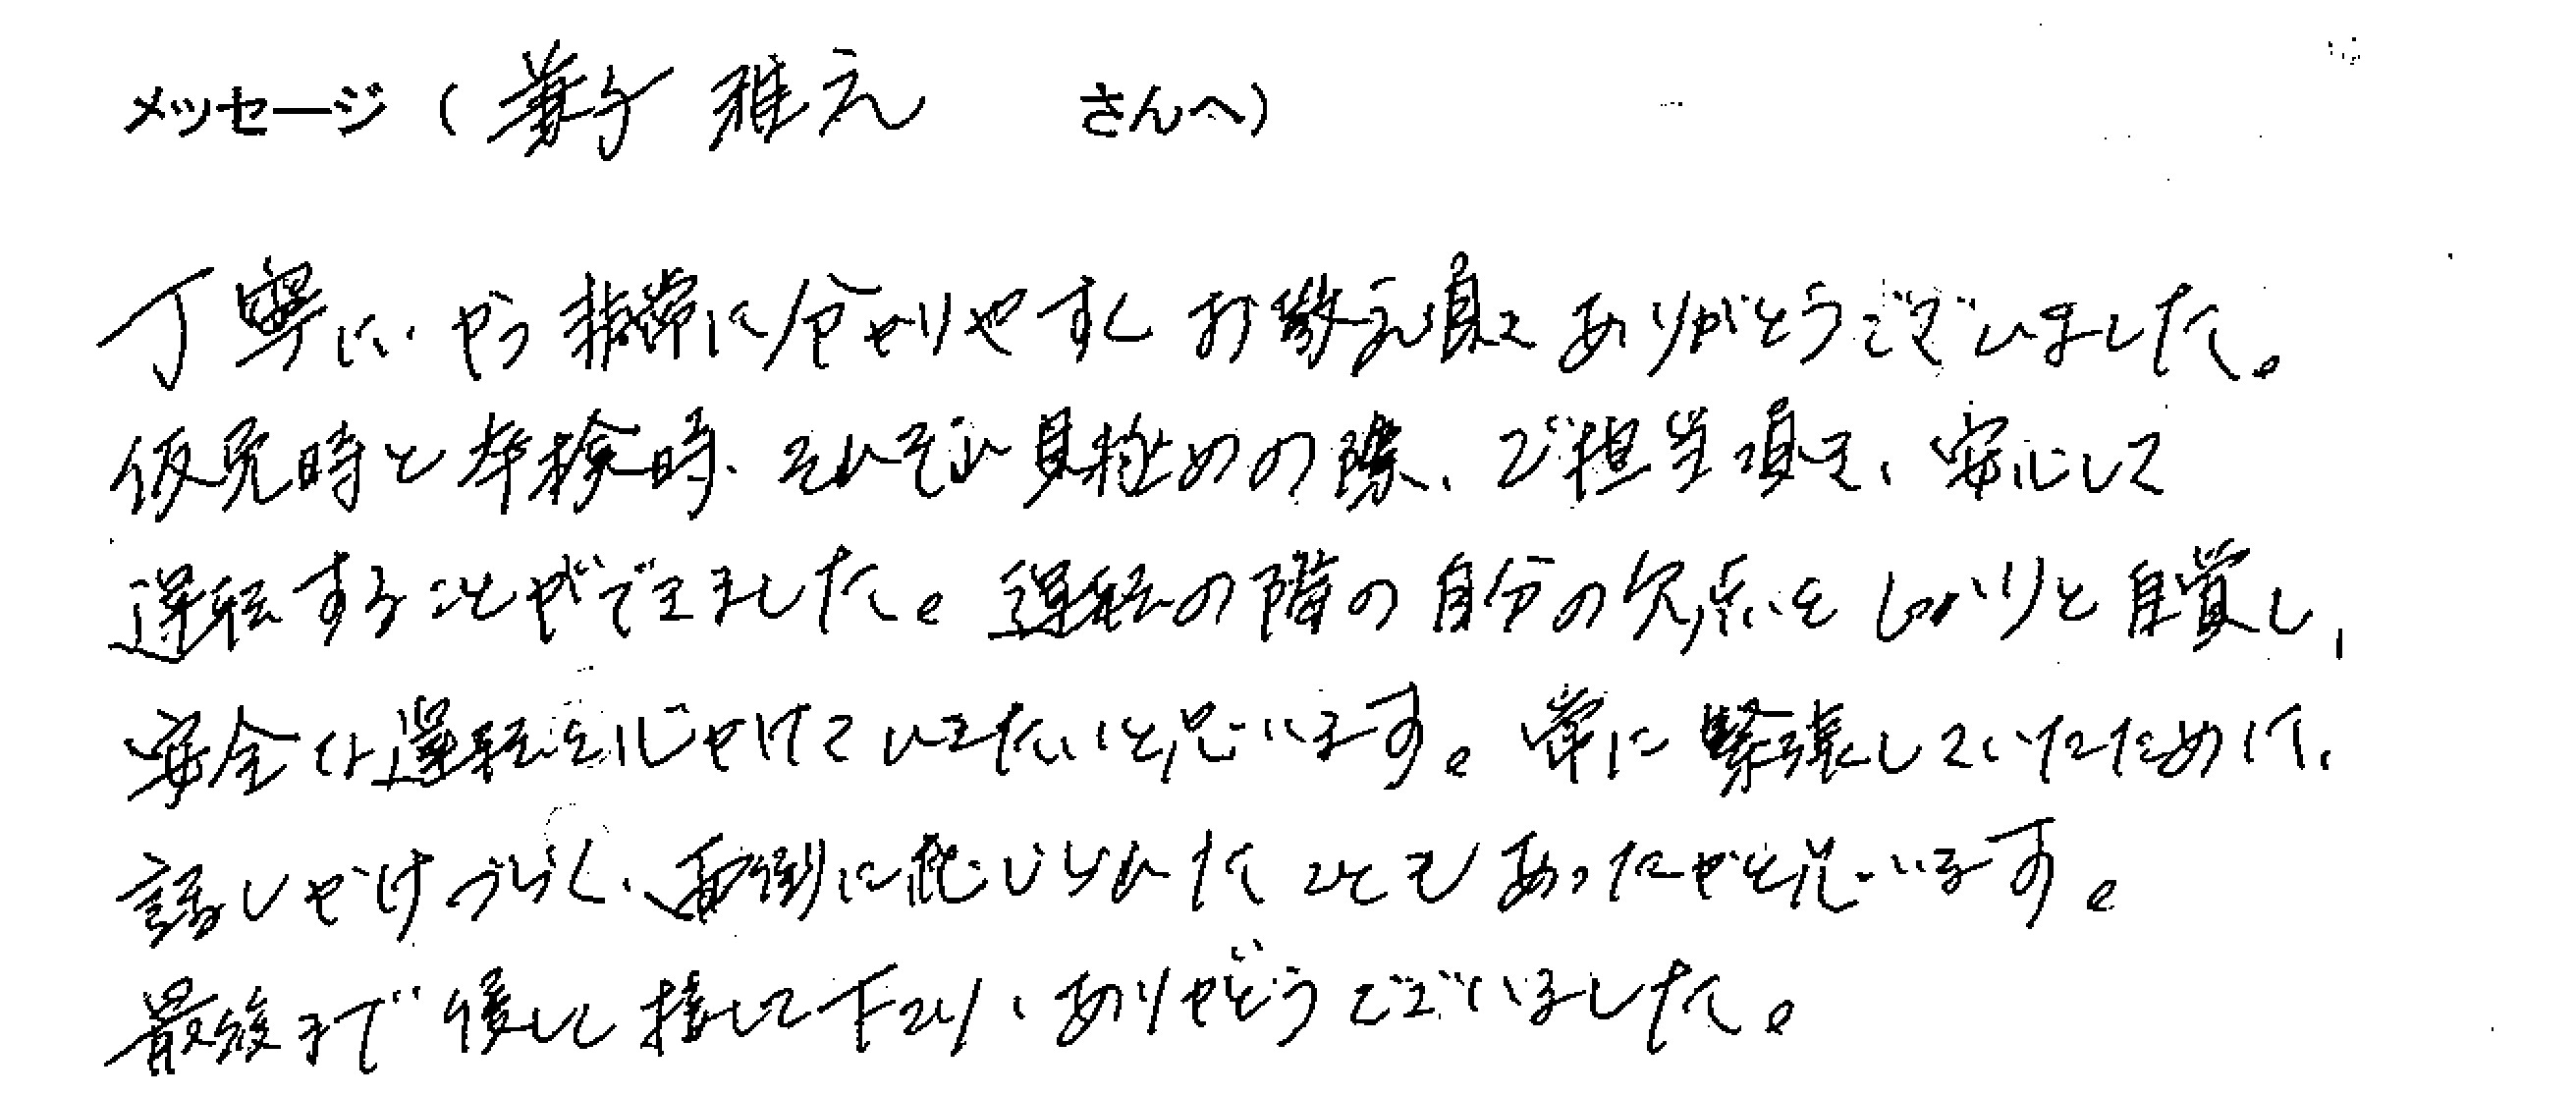 メッセージ（兼子 雅之 さんへ）
丁寧に、かつ非常に分かりやすくお教え頂きありがとうございました。
仮免時と卒検時、それぞれ見極めの際、ご担当頂き、安心して
運転することができました。運転の際の自分の欠点をしっかりと自覚し、
安全な運転を心がけていきたいと思います。常に緊張していたために、
話しかけづらく、面倒に感じられたこともあったかと思います。
最後まで優しく接して下さり、ありがとうございました。